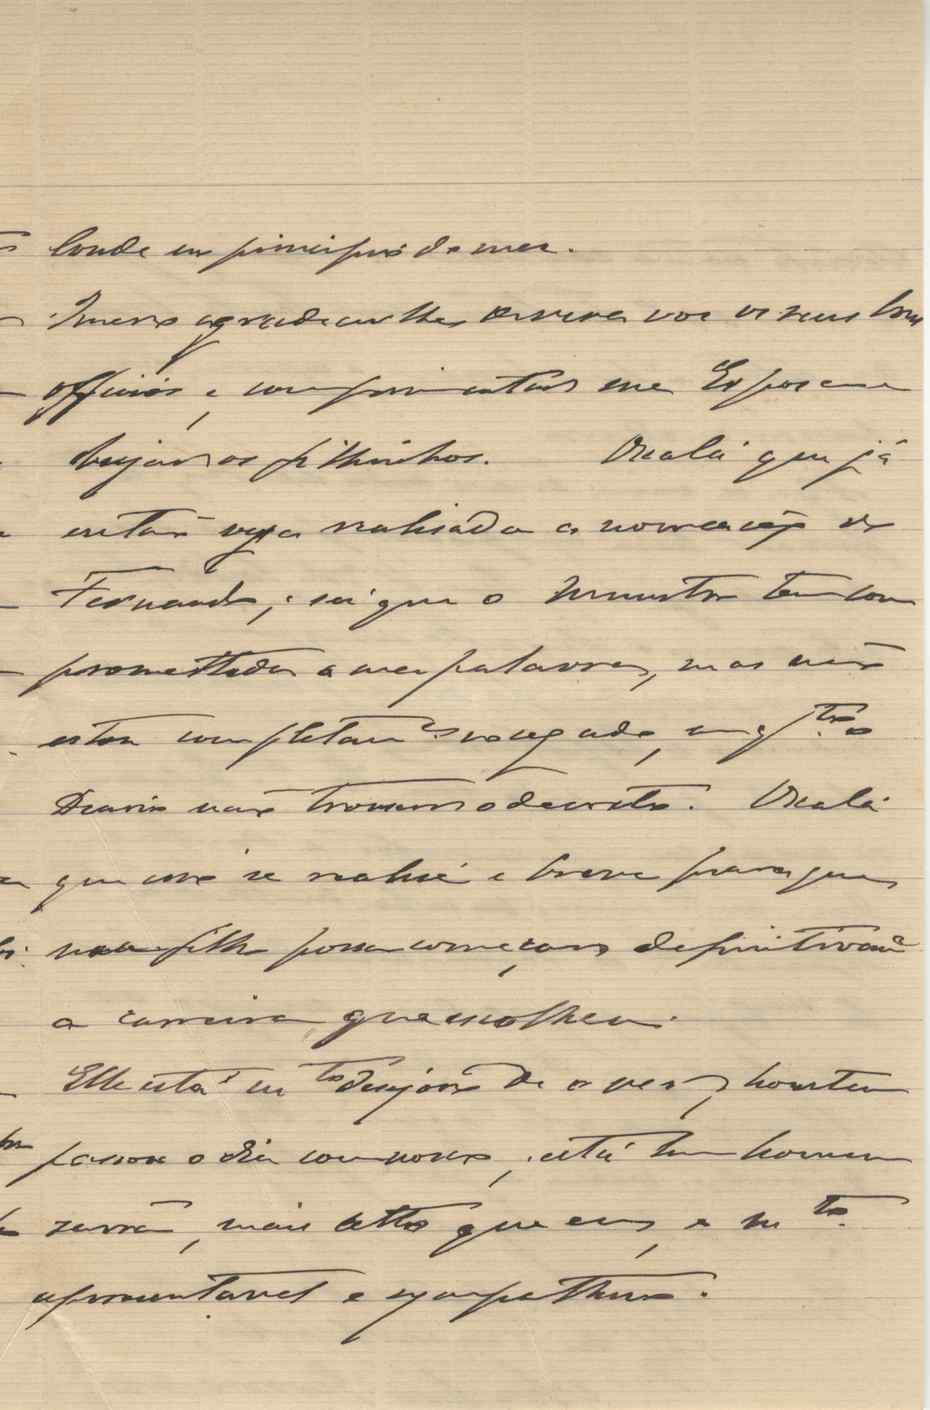 Conde em principio do mez.
Iremos agradecer lhes de viva voz os seus bons
officios, e comprimentar sua Esposa e
beijar os filhinhos. Oxalá que já
então veja realisada a nomeação do
Fernando; sei que o Ministro tem com
promettida a sua palavra, mas não
estou completam.e socegado, em q.to o
Diario não trouxer o decreto. Oxalá
que isso se realise e breve para que
meu filho possa começar definitivam.e
a carreira que escolheu.
Elle está m.to desejoso de o ver, hontem
passou o dia comnosco, está um homem
zarrão, mais alto que eu, e m.to
apresentavel e sympathico.